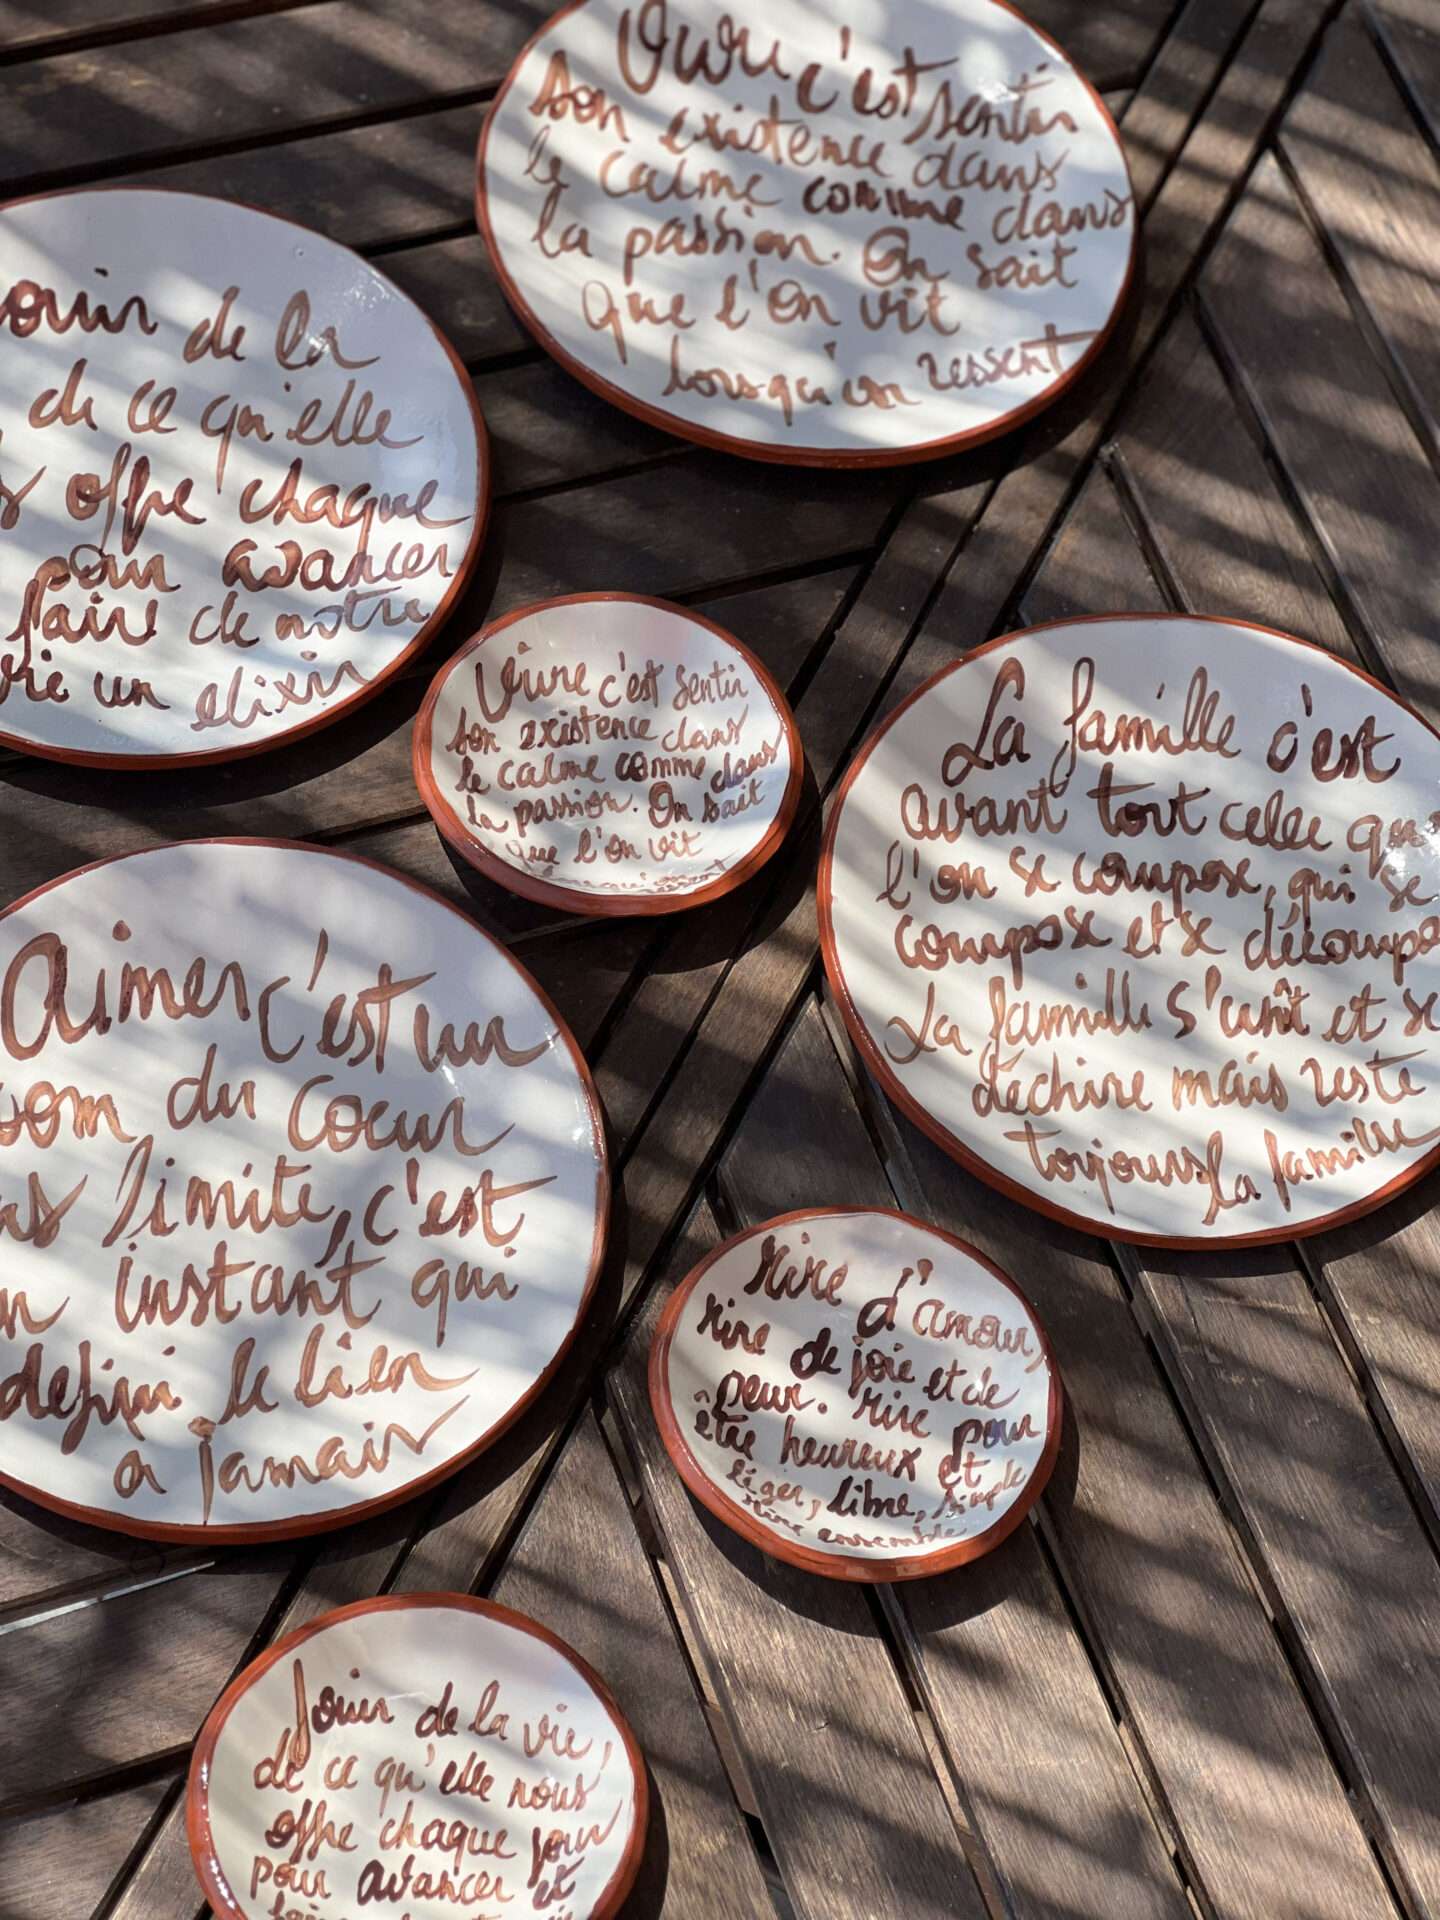 Vivre c'est sentir
son existence dans
le calme comme dans
la passion. On sait
que l'on vit
lorsqu'on ressent
ouir de la
de ce qu'elle
s offre chaque
pour avancer
faire de notre
vie un elixir
Vivre c'est sentir
son existence dans
le calme comme dans
la passion. On sait
que l'on vit
lorsqu'on
ressent
La famille c'est
avant tout celle que
l'on se compose, qui se
compose et se décompo
La famille s'unît et se
déchire mais reste
toujours la famille
Aimer c'est un
oom du coeur
ns limite, c'est
un instant qui
defini le lien
a jamais
Rire d'amour,
rire de joie et de
peur. Rire pour
être heureux et
léger, libre, simple
rire ensemble
Jouir de la vie,
de ce qu'elle nous
offre chaque jour
pour avancer et